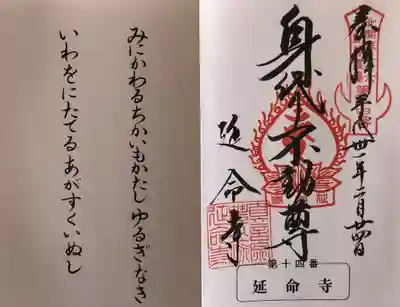 奉拝
平成卅一年二月廿四日
身代不動尊
延命寺
第十四番
延命寺
みにかわるちかいもかたしゆるぎなき
いわをにたてるあがすくいぬし